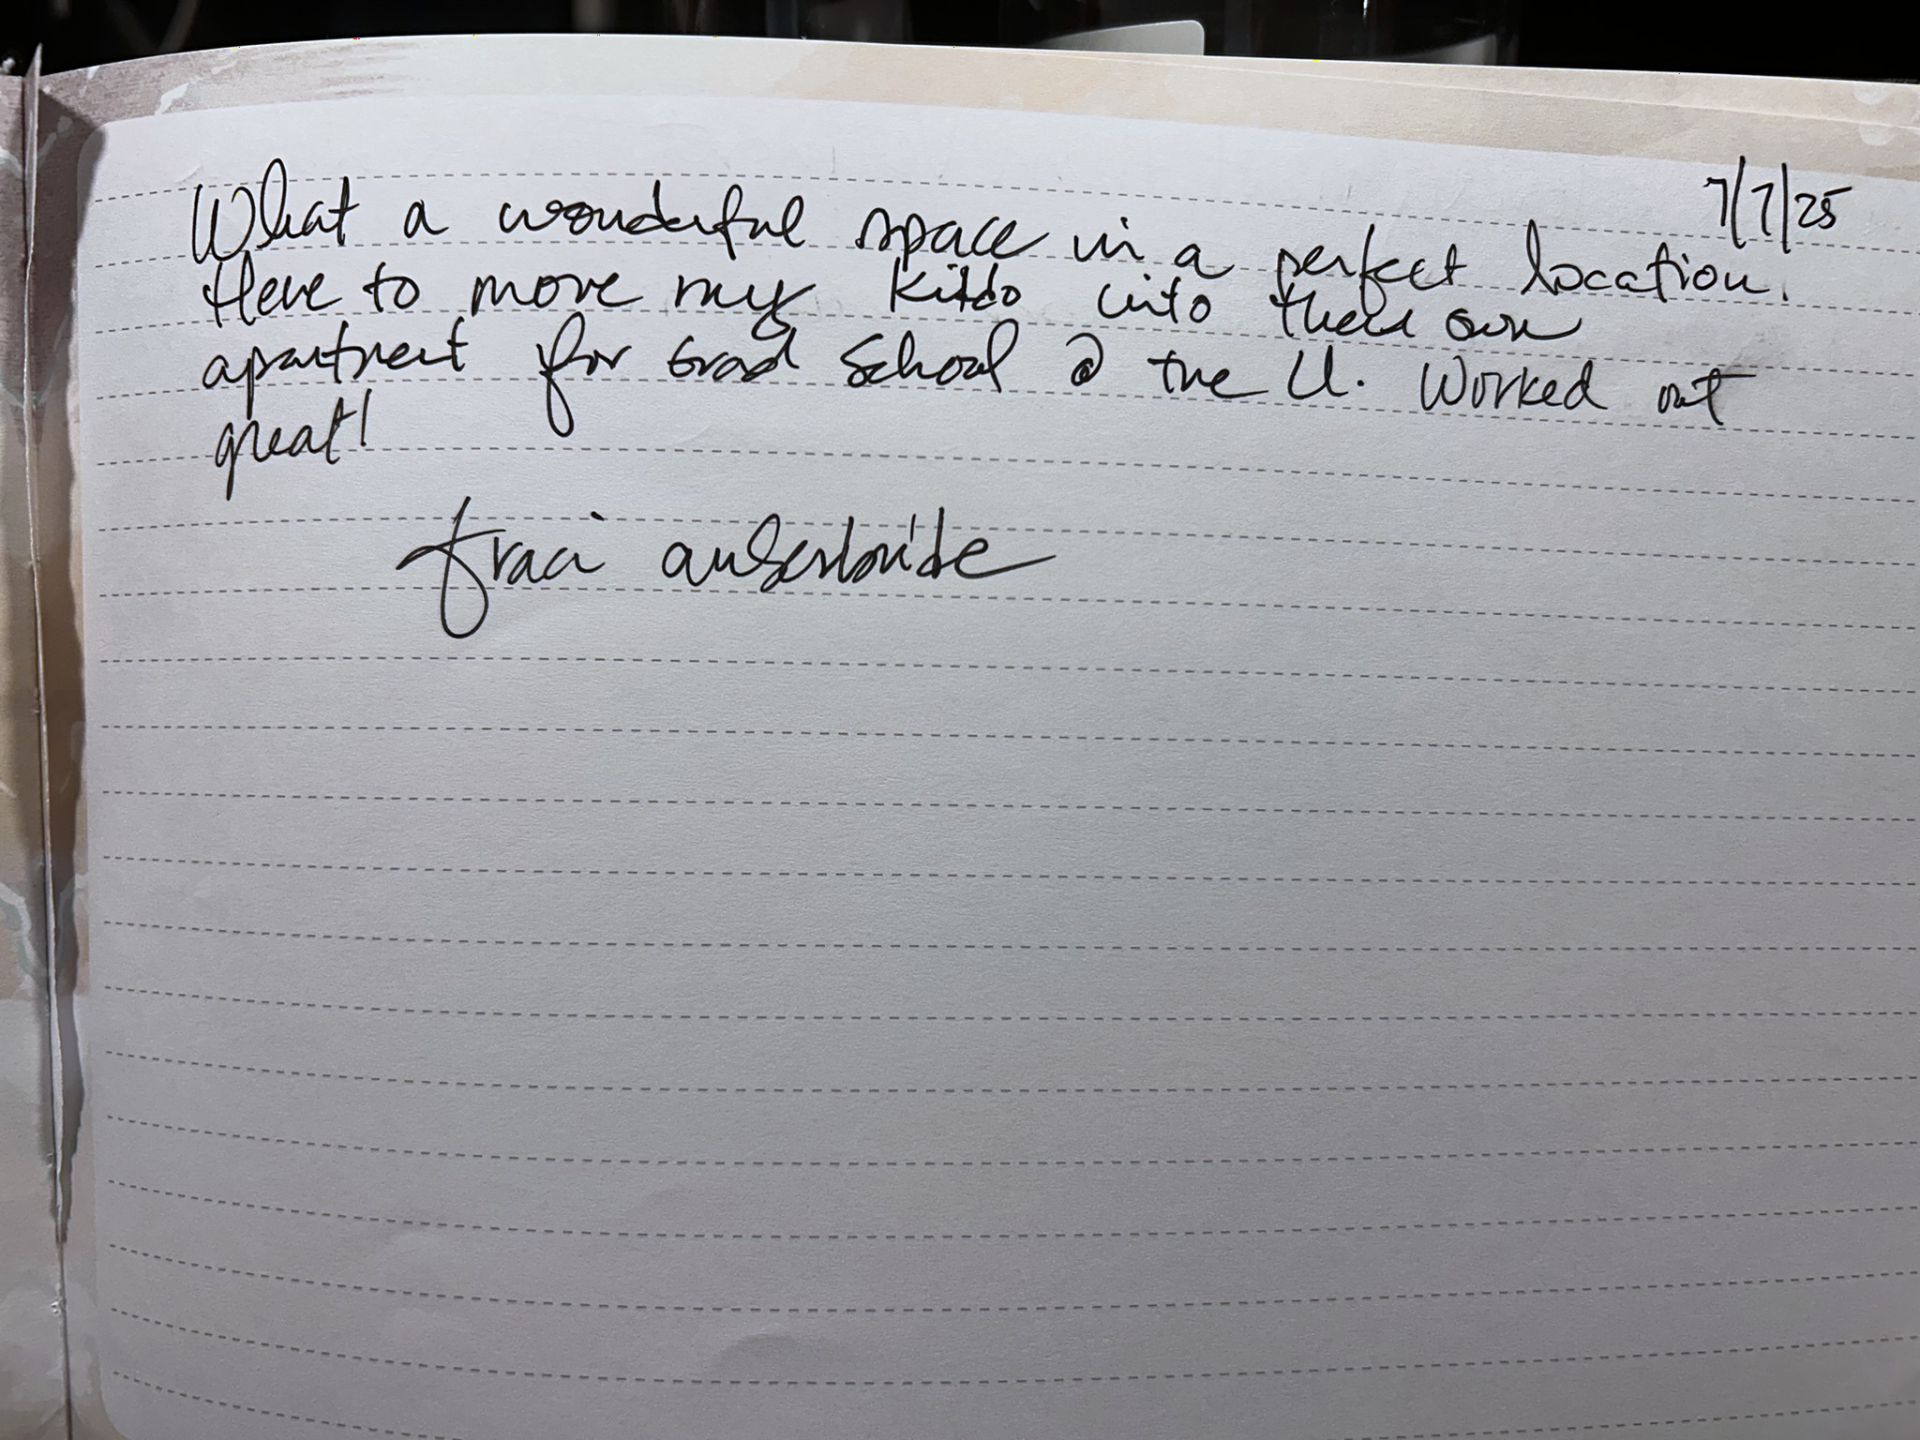 7/7/25
What a wonderful space in a perfect location.
Here to move my kiddo into their own
apartment for Grad School @ the U. Worked out
great!
Traci